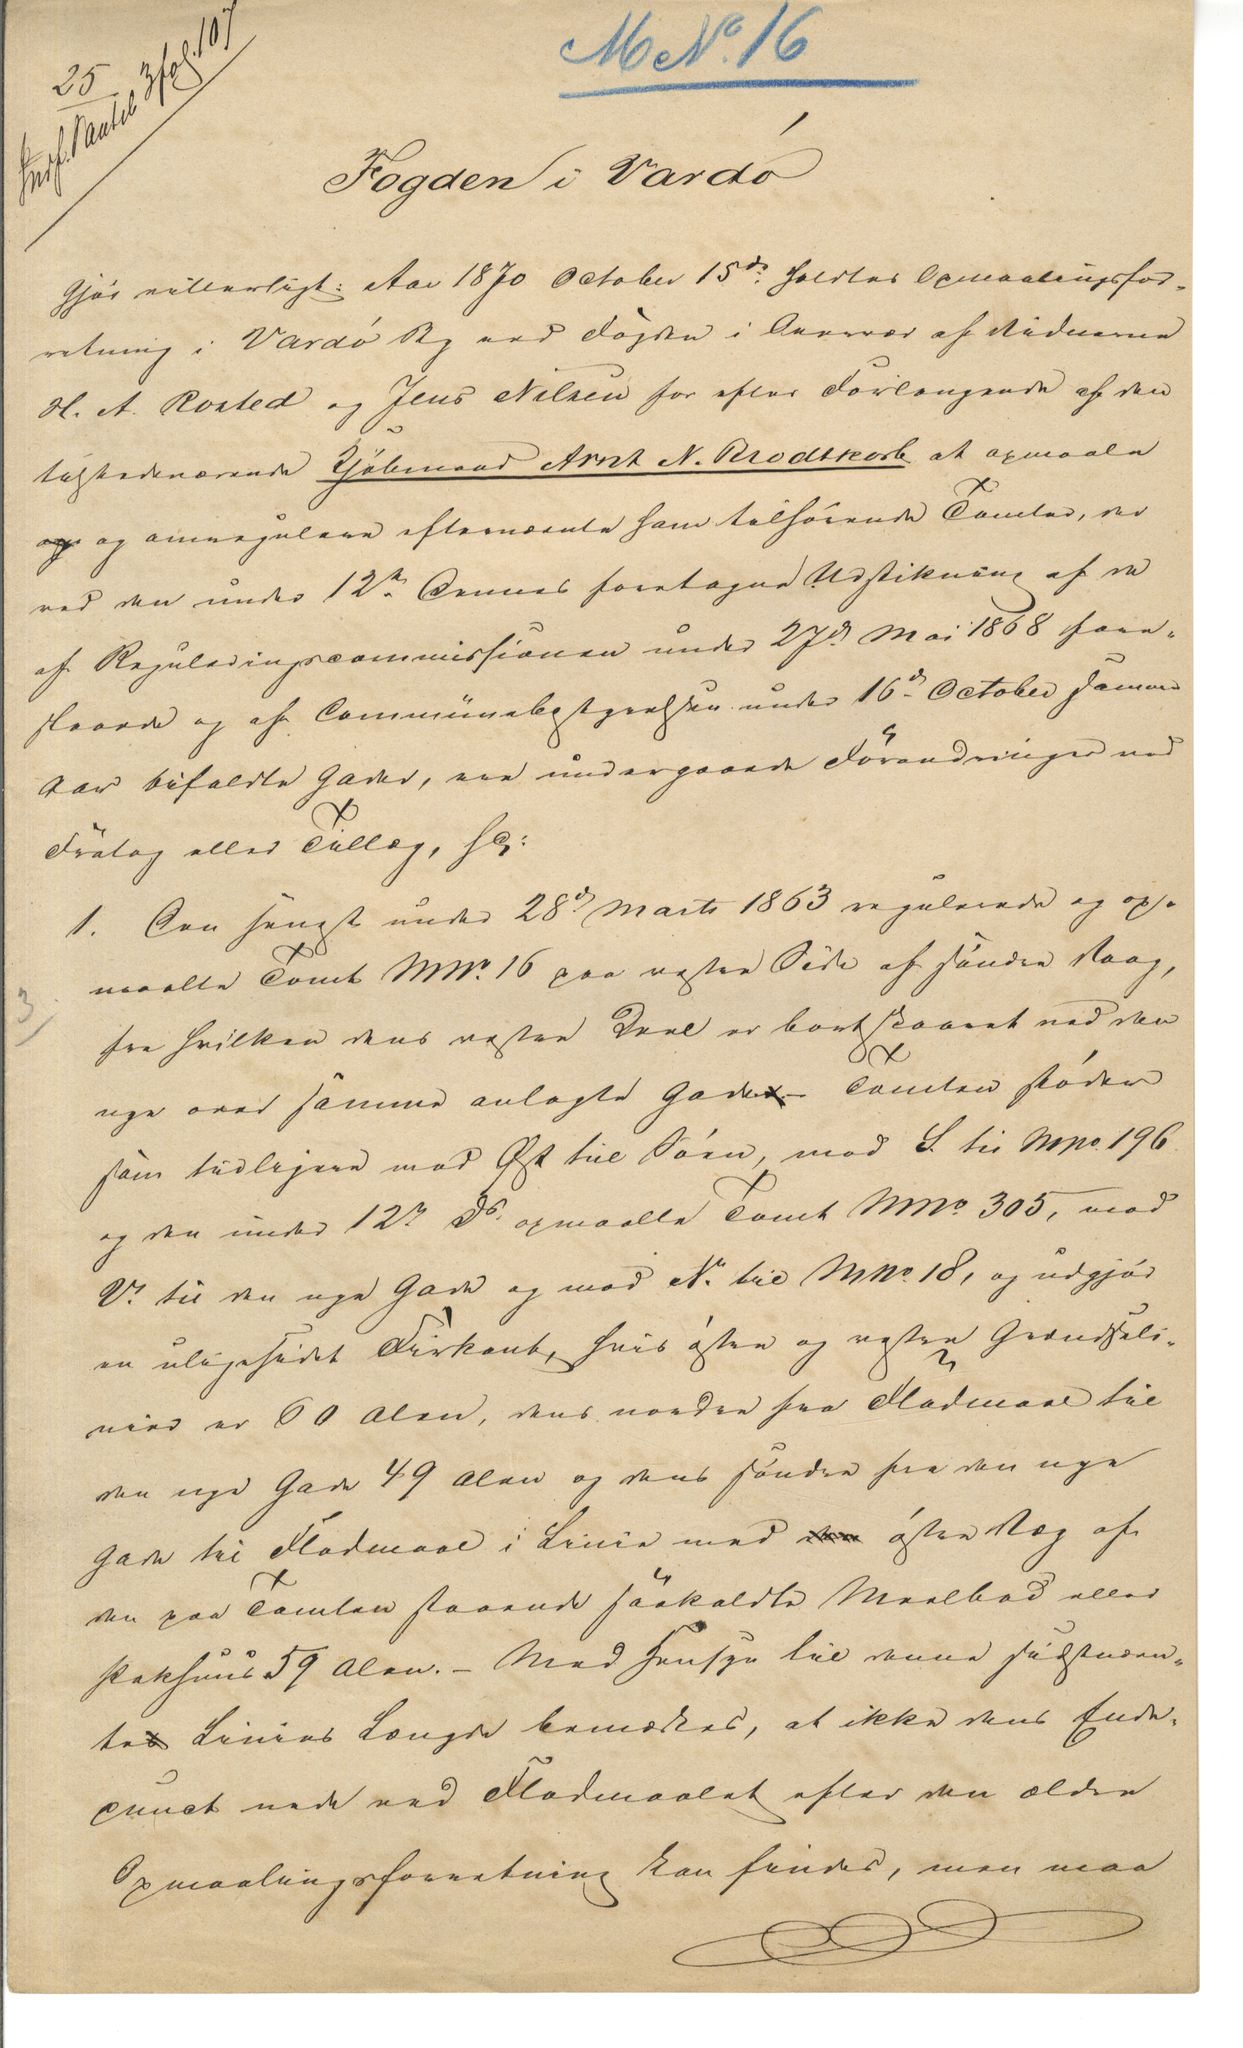 MNo. 16
25
Indf. Panteb 3 fol. 107
Fogden i Vardø
Gjør vitterligt: Aar 1870 October 15de holdtes Opmaalingsfor-
retning i Vardø By ved Fogden i Overvær af Vidnerne
H. A. Rosted og Jens Nilsen for efter Forlangende af den
tilstedeværende Kjøbmand Arnt N. Brodtkorb at opmaale
og omregulere efternævnte ham tilhørende Tomter, der
ved den under 12te Dennes foretagne Udstikning af de
af Reguleringscommissionen under 27de Mai 1868 fore-
slaaede og af Communebestyrelsen under 16de October samme
Aar bifaldte Gader, ere undergaaede Forandringer ved
Fratag eller Tillæg, sc:
1. Den hengst under 28de Marts 1863 regulerede og op-
maalte Tomt MNo. 16 paa vestre Side af søndre Vaag,
fra hvilken dens vestre Deel er bortskaaret ved den
nye over samme anlagte Gade – Tomten støder
som tidligere mod Øst til Søen, mod S. til MNo 196
og den under 12te ds. opmaalte Tomt MNo 305, mod
V. til den nye Gade og mod N. til MNo 18, og udgjør
en uligesidet Firkant, hvis østre og vestre Grændseli-
nier er 60 Alen, dens nordre fra Flodmaal til
den nye Gade 49 Alen og dens søndre fra den nye
Gade til Flodmaal i Linie med østre Væg af
den paa Tomten staaende saakaldte Meelbod eller
Pakhuus 59 Alen. – Med Hensyn til denne sidstnævn-
te Linies Længde bemærkes, at ikke dens Ende-
punct nede ved Flodmaalet efter den ældre
Opmaalingsforretning kan findes, men maa
3